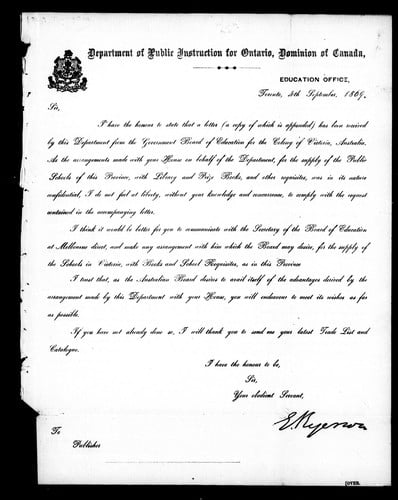 Department of Public Instruction for Ontario, Dominion of Canada,
EDUCATION OFFICE,
Toronto, 8th September, 1869.
Sir,
I have the honour to state that a letter (a copy of which is appended) has been received
by this Department from the Government Board of Education for the Colony of Victoria, Australia.
As the arrangements made with your House on behalf of the Department, for the supply of the Public
Schools of this Province, with Library and Prize Books, and other requisites, was in its nature
confidential, I do not feel at liberty, without your knowledge and concurrence, to comply with the request
contained in the accompanying letter.
I think it would be better for you to communicate with the Secretary of the Board of Education
at Melbourne direct, and make any arrangement with him which the Board may desire, for the supply of
the Schools in Victoria, with Books and School Requisites, as in this Province
I trust that, as the Australian Board desires to avail itself of the advantages derived by the
arrangement made by this Department with your House, you will endeavour to meet its wishes as far
as possible.
If you have not already done so, I will thank you to send me your latest Trade List and
Catalogue.
I have the honour to be,
Sir,
Your obedient Servant,
E Ryerson
To
Publisher
[OVER.